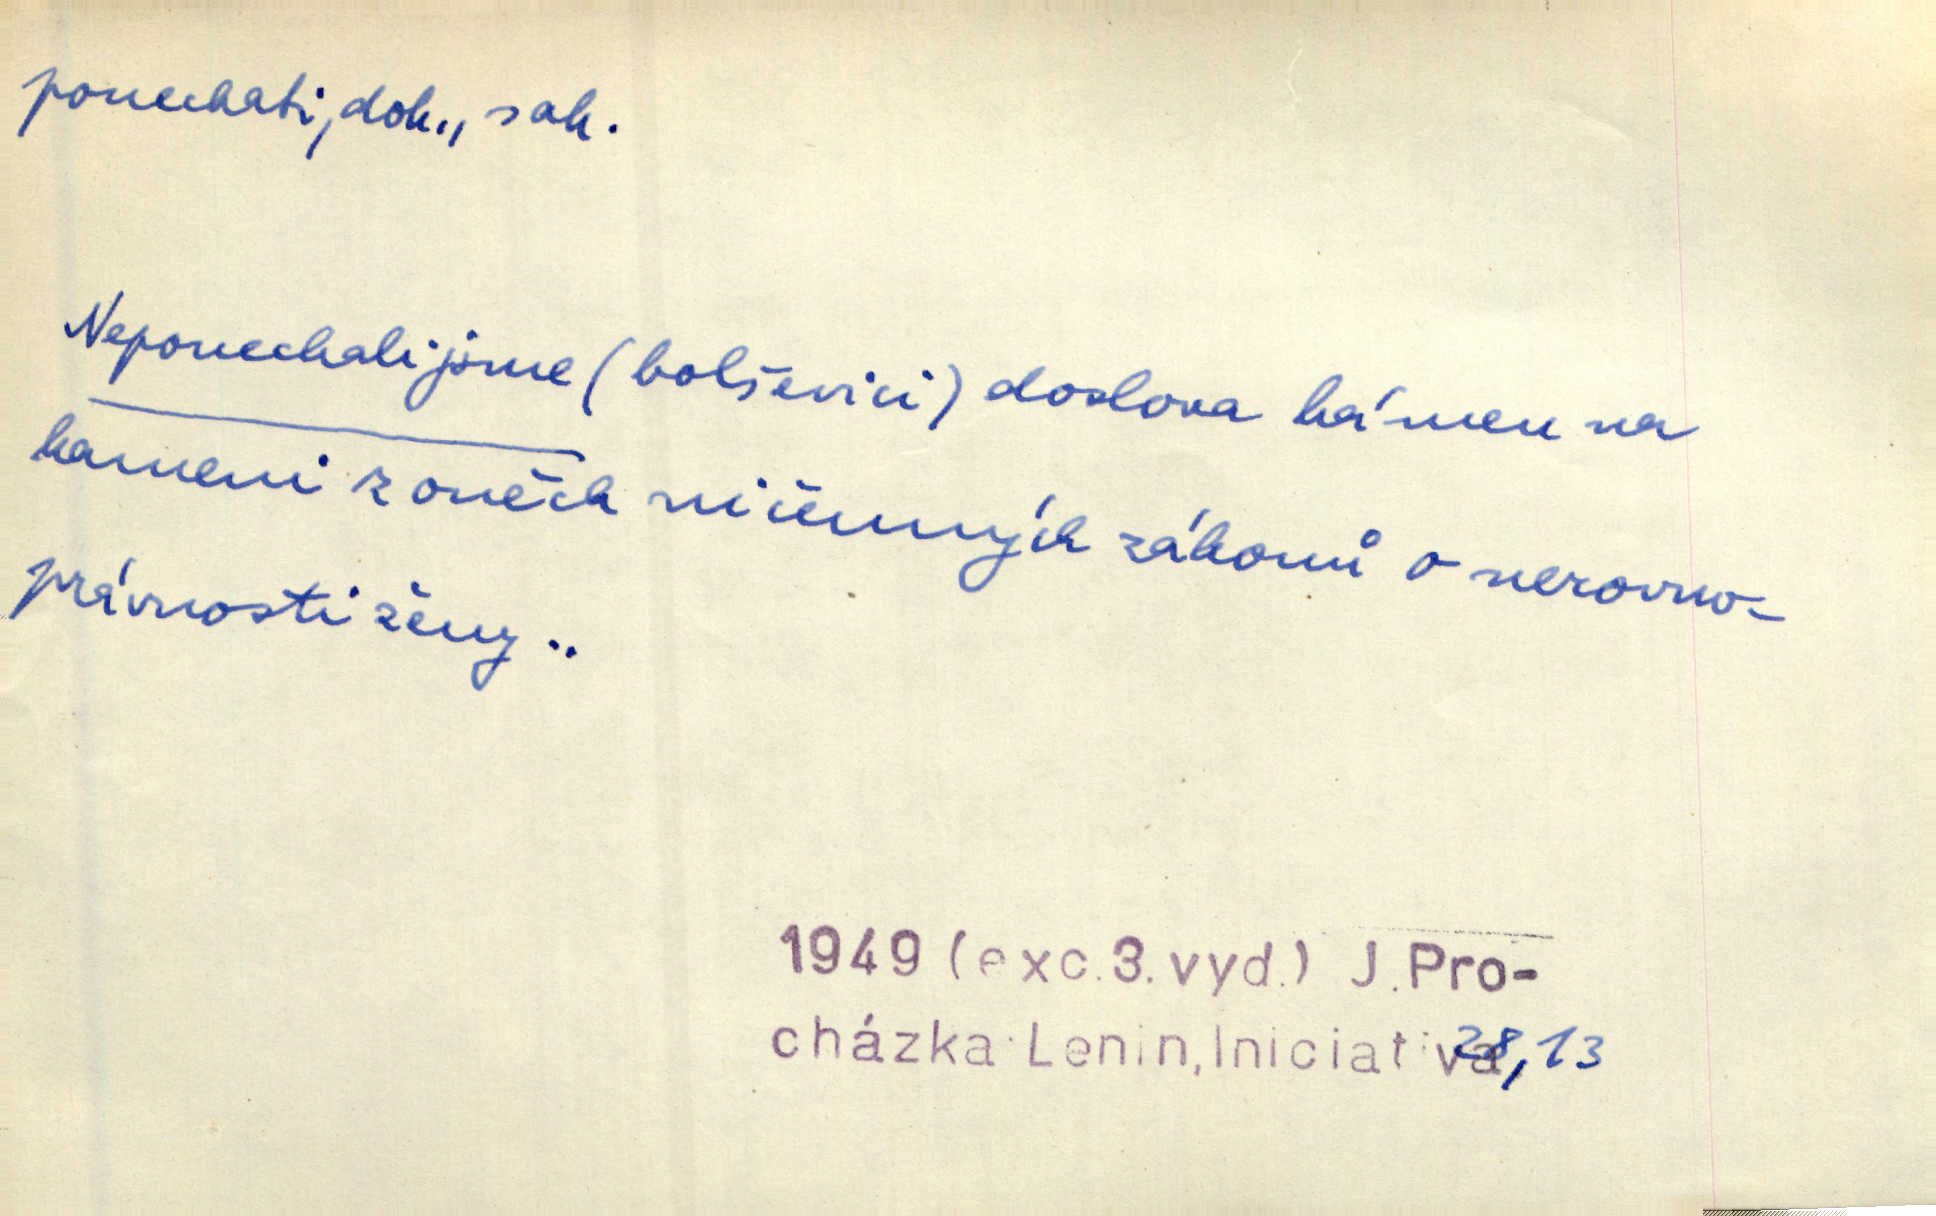 ponechati, dok., sak.
Neponechali jsme (bolševici) doslova kámen na
kameni z oněch ničemných zákonů o nerovno-
právnosti ženy ..
1949 (exc. 3. vyd.) J. Pro-
cházka·Lenin, Iniciativa 28, 13